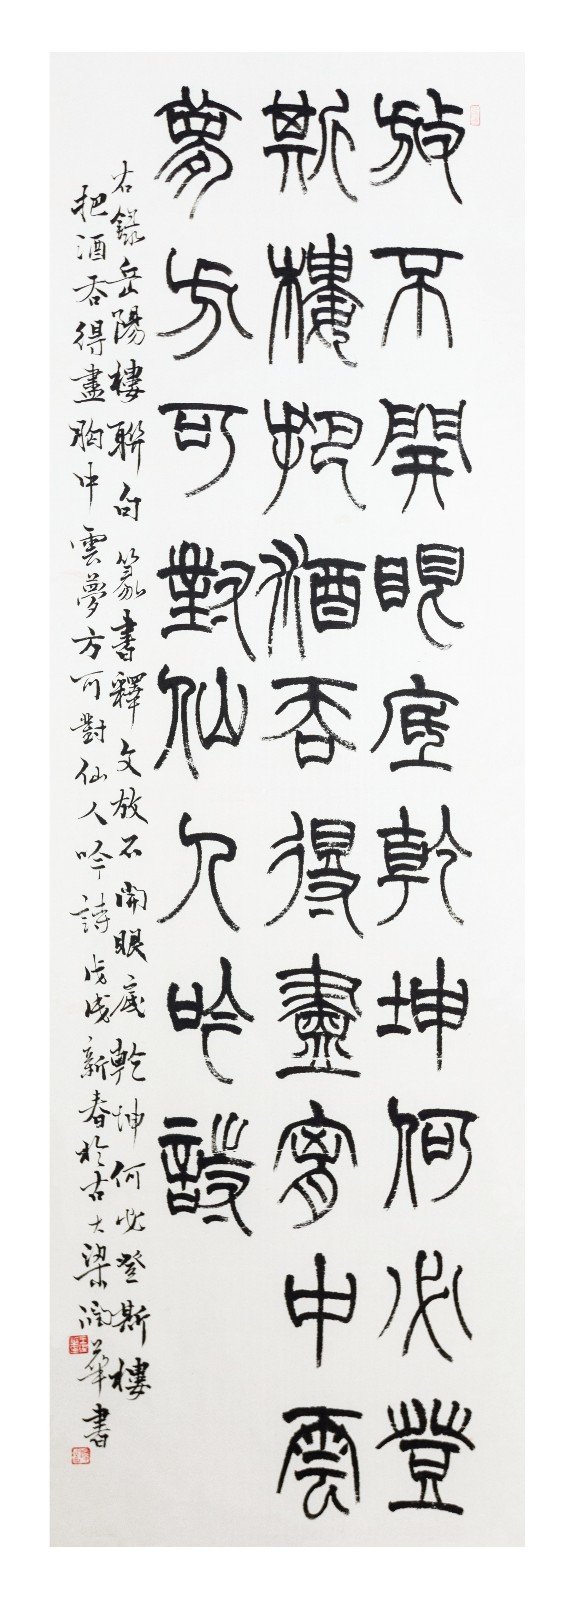 放不開眼底乾坤何必登
斯樓把酒吞得盡胷中雲
夢方可對仙人吟詩
右錄岳陽樓聯句 篆書釋文放不開眼底乾坤何必登斯樓
把酒吞得盡胸中雲夢方可對仙人吟詩戊戌新春於古大梁潤華書